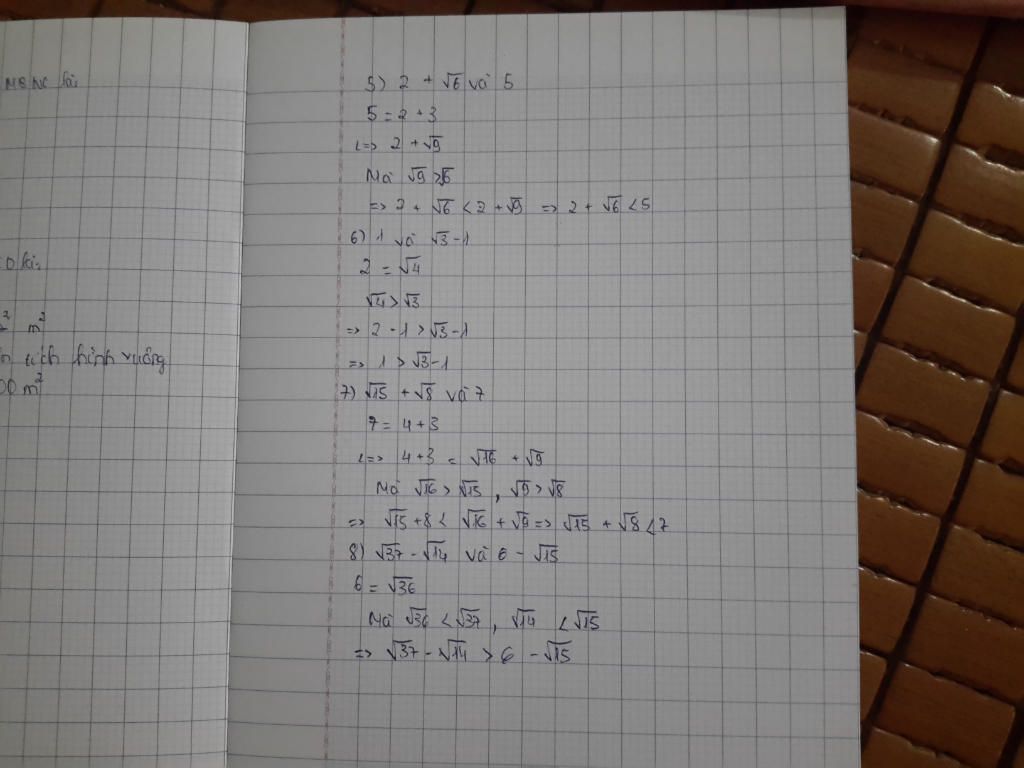 hình vuông
m²
00 m²
5) 2 + √6 và 5
5 = 2 + 3
<=> 2 + √9
Mà √9 > √6
=> 2 + √6 < 2 + √9 => 2 + √6 < 5
6) 1 và √3 - 1
2 = √4
√4 > √3
=> 2 - 1 > √3 - 1
=> 1 > √3 - 1
7) √15 + √8 và 7
7 = 4 + 3
<=> 4 + 3 = √16 + √9
Mà √16 > √15 , √9 > √8
=> √15 + 8 < √16 + √9 => √15 + √8 < 7
8) √37 - √14 và 6 - √15
6 = √36
Mà √36 < √37 , √14 < √15
=> √37 - √14 > 6 - √15